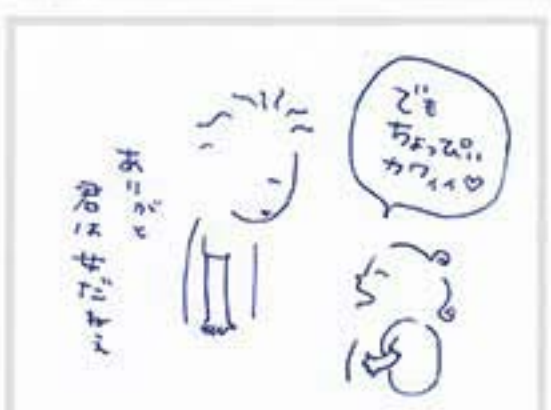 でも
ちょっぴり
カワィィ♡
ありがと
君は女だねぇ